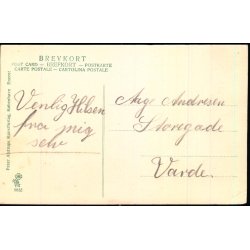 BREVKORT
POST CARD — BREFKORT — POSTKARTE
CARTE POSTALE — CARTOLINA POSTALE
Venlig Hilsen
fra mig
selv
Aage Andresen
Storegade
Varde.
Peter Alstrups Kunstforlag, København Eneret